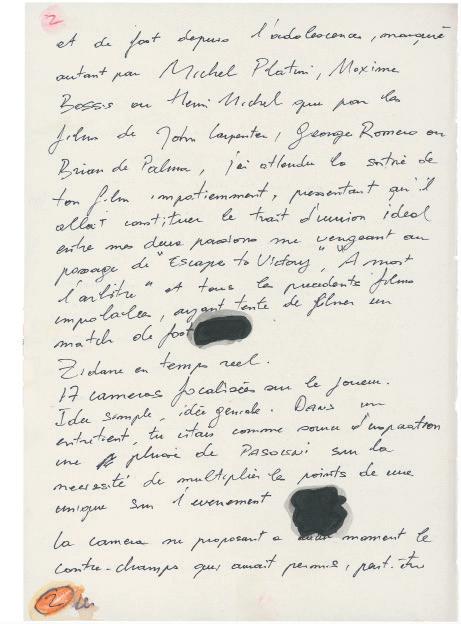 2
et de foot depuis l'adolescence, marqué
autant par Michel Platini, Maxime
Bossis ou Henri Michel que par les
films de John Carpenter, George Romero ou
Brian de Palma, j'ai attendu la sortie de
ton film impatiemment, pressentant qu'il
allait constituer le trait d'union ideal
entre mes deux passions me vengeant au
passage de "Escape to Victory", "A mort
l'arbitre" et tous les precedents films
improbables, ayant tenté de filmer un
match de foot
Zidane en temps reel.
17 cameras focalisées sur le joueur.
Idee simple, idée geniale. Dans un
entretient, tu citais comme source d'inspiration
une phrase de PASOLINI sur la
necessité de multiplier le points de vue
unique sur l'evenement
La camera ne proposant a aucun moment le
contre-champs qui aurait permis, peut-etre
2